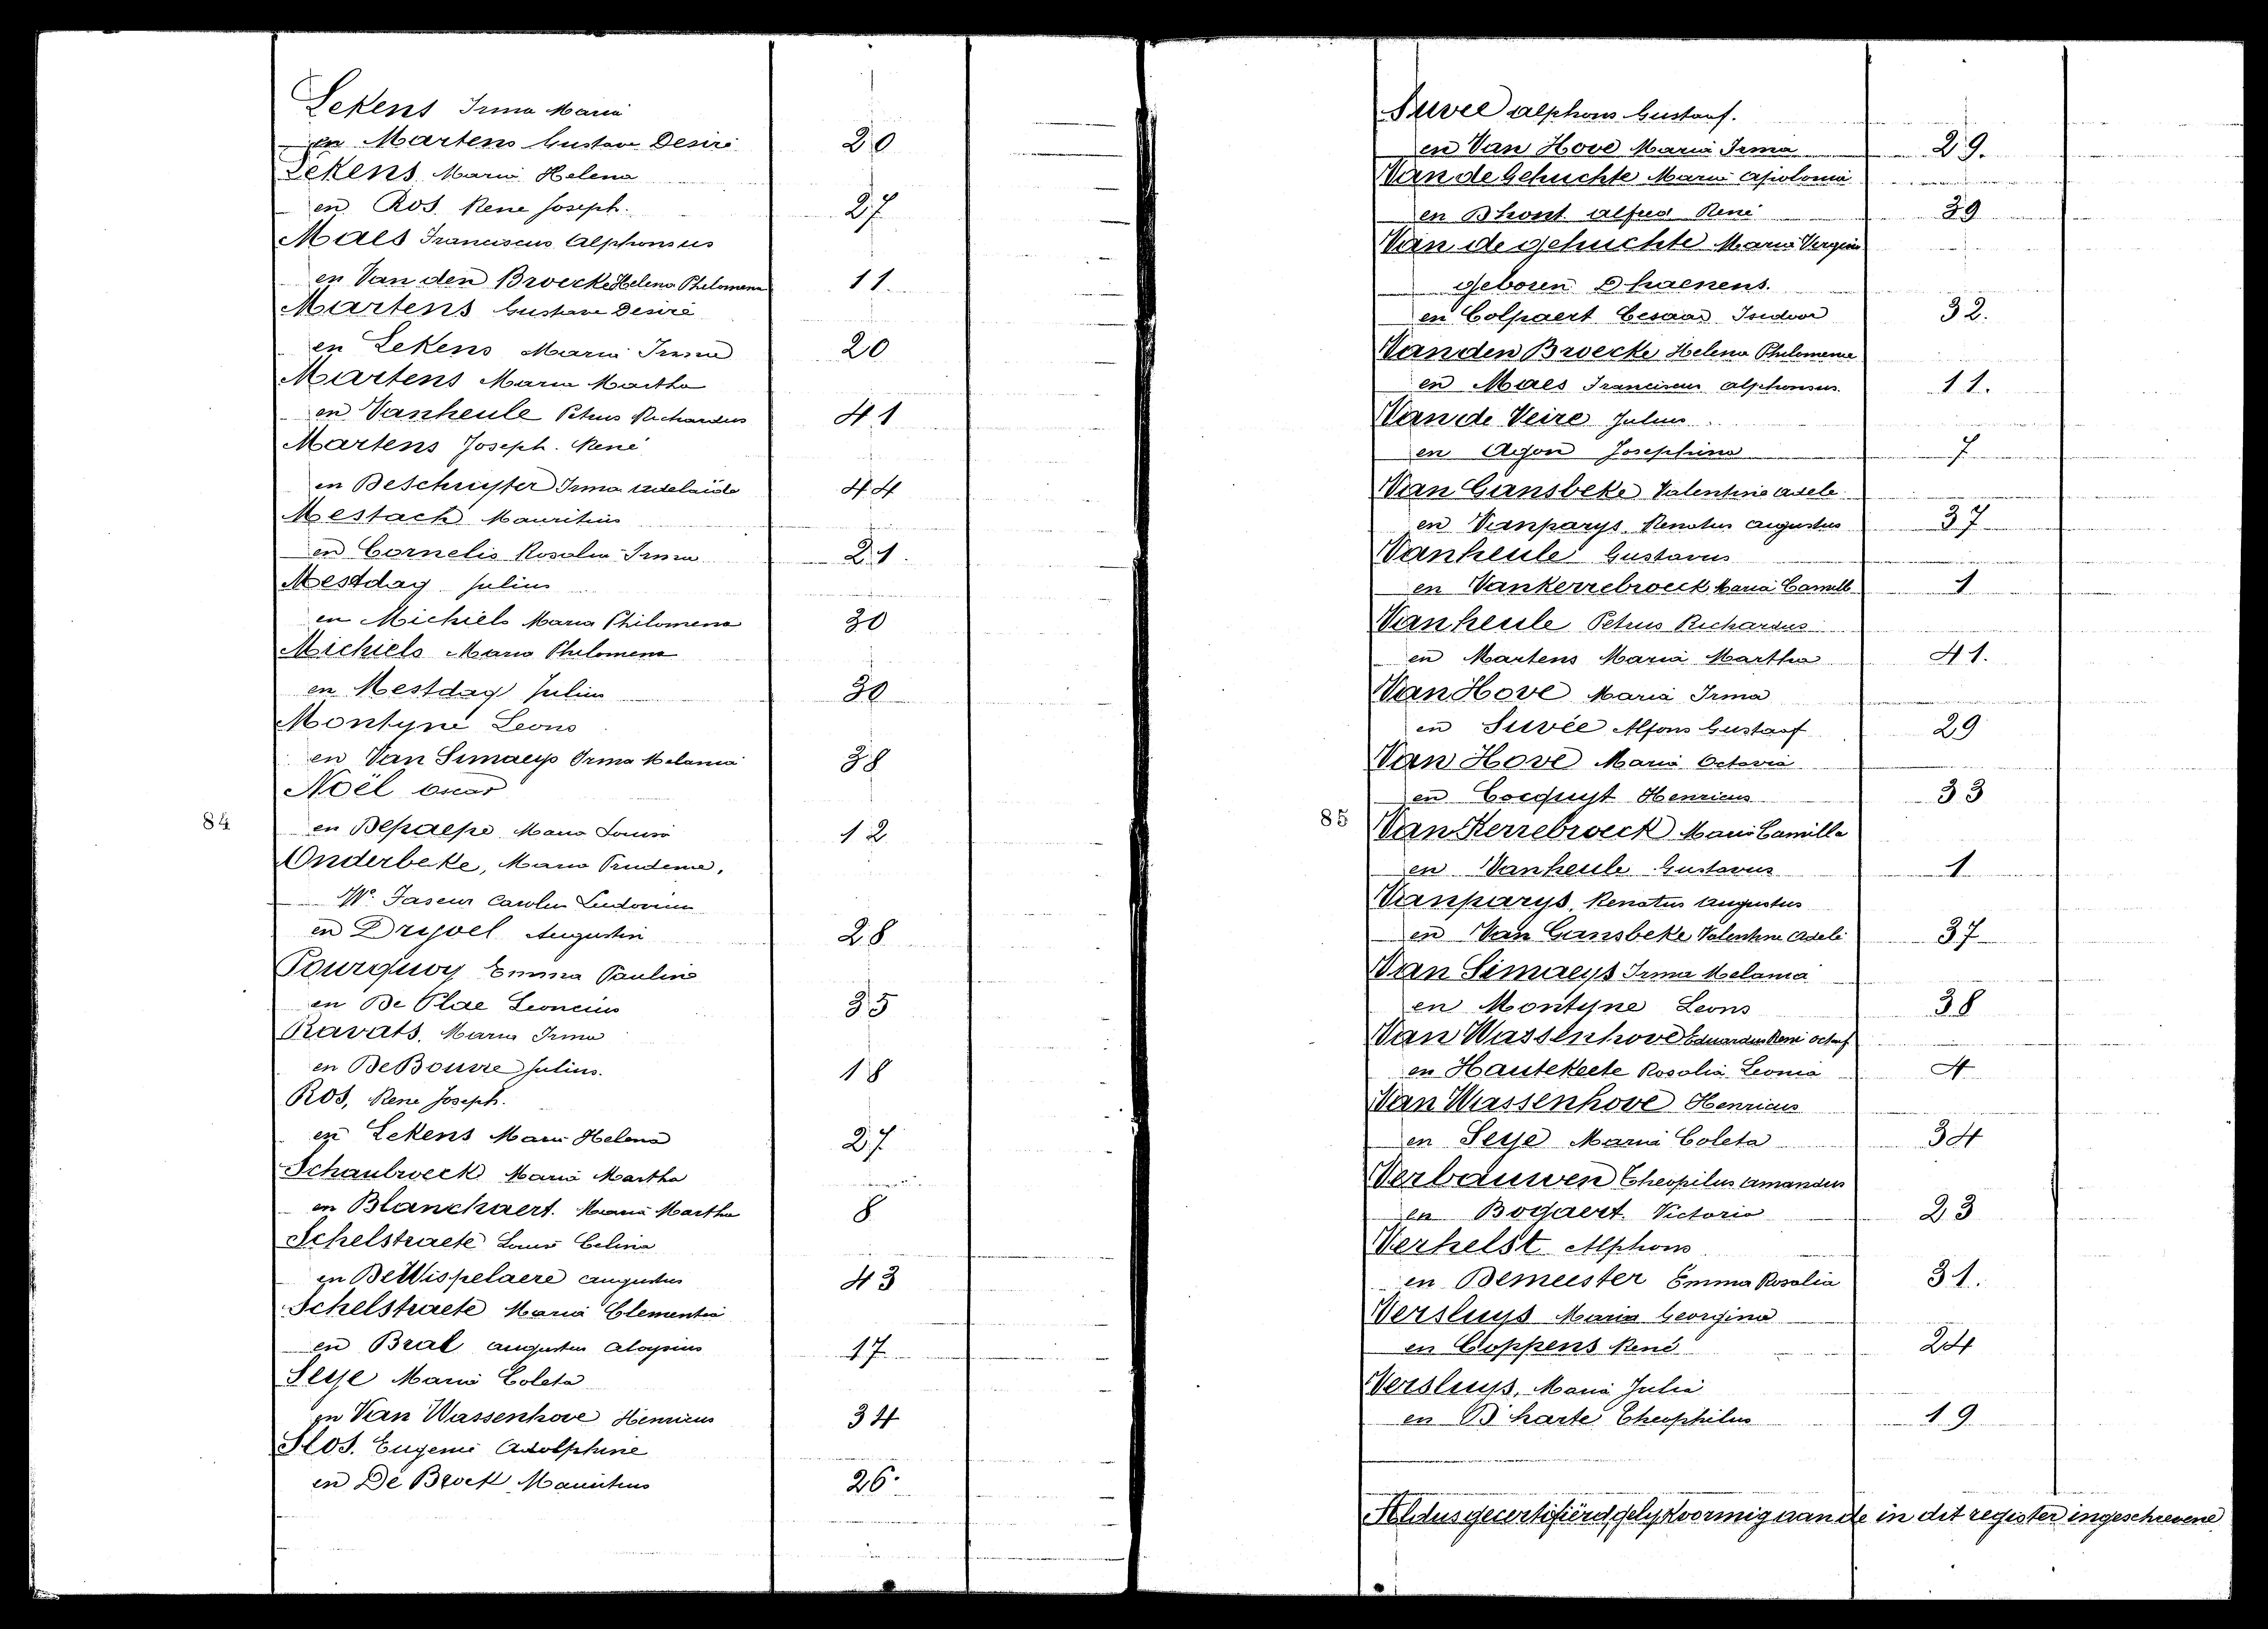 Lekens Irma Maria
en Martens Gustave Desiré 20
Lekens Maria Helena
en Ros. Rene Joseph. 27
Maes Franciscus Alphonsus
en Van den Broecke Helena Philomena 11.
Martens Gustave Desiré
en Lekens Maria Irma 20
Martens Maria Martha
en Vanheule Petrus Richardus 41
Martens Joseph. René
en DeSchuyter Irma Adelaïde 44
Mestach Mauritius
en Cornelis Rosalia Irma 21.
Mestdag Julius
en Michiels Maria Philomena 30
Michiels Maria Philomena
en Mestdag Julius 30
Montyne Leons
en Van Simaeys Irma Melania 38
Noël Oscar
84
en Depaepe Maria Louisa 12
Onderbeke, Maria Prudence,
We. Faseur Carolus Ludovicus
en Dryoel Augustin 28
Pourquoy Emma Pauline
en De Plae Leoncius 35
Ravats, Maria Irma
en DeBouvre Julius. 18
Ros, Rene Joseph.
en Lekens Maria Helena 27
Schaubroeck Maria Martha
en Blanckaert. Maria Martha 8
Schelstraete Louis Celina
en DeWispelaere Augustus 43
Schelstraete Maria Clementia
en Bral Augustus Aloysius 17
Seye Maria Coleta
en Van Wassenhove Henricus 34
Slos. Eugenie Adolphine
en De Brock Mauritius 26.
Suvee Alphons Gustaaf.
en Van Hove Maria Irma 29.
Van de Gehuchte Maria Apolonia
en Dhont Alfred René 39
Van de gehuchte Maria Vergenie
geboren Dhaenens.
en Colpaert Cesaar Isidoor 32.
Vanden Broecke Helena Philomena
en Maes Franciscus Alphonsus 11.
Van de Veire Julius
en Agon Josephina 7
Van Gansbeke Valentine Adele
en Vanparys. Renatus Augustus 37
Vanheule Gustavus
en Vankerrebroeck Maria Camilla 1
Vanheule Petrus Richardus
en Martens Maria Martha 41.
Van Hove Maria Irma
en Suvée Alfons Gustaaf 29
Van Hove Maria Octavia
en Cocquyt Henricus 33
85
Van Kerrebroeck Maria Camilla
en Vanheule Gustavus 1
Vanparys. Renatus Augustus
en Van Gansbeke Valentine Adele 37
Van Simaeys Irma Melania
en Montyne Leons 38
Van Wassenhove Eduardus René Octaaf
en Hautekeete Rosalia Leonia 4
Van Wassenhove Henricus
en Seye Maria Coleta 34
Verbauwen Theopilus Amandus
en Bogaert. Victoria 23
Verhelst Alphons
en Demeester Emma Rosalia 31.
Versluys Maria Georgina
en Coppens René 24
Versluys, Maria Julia
en D'harte Theophilus 19
Aldus gecertifiëerd gelykvormig aan de in dit register ingeschrevene